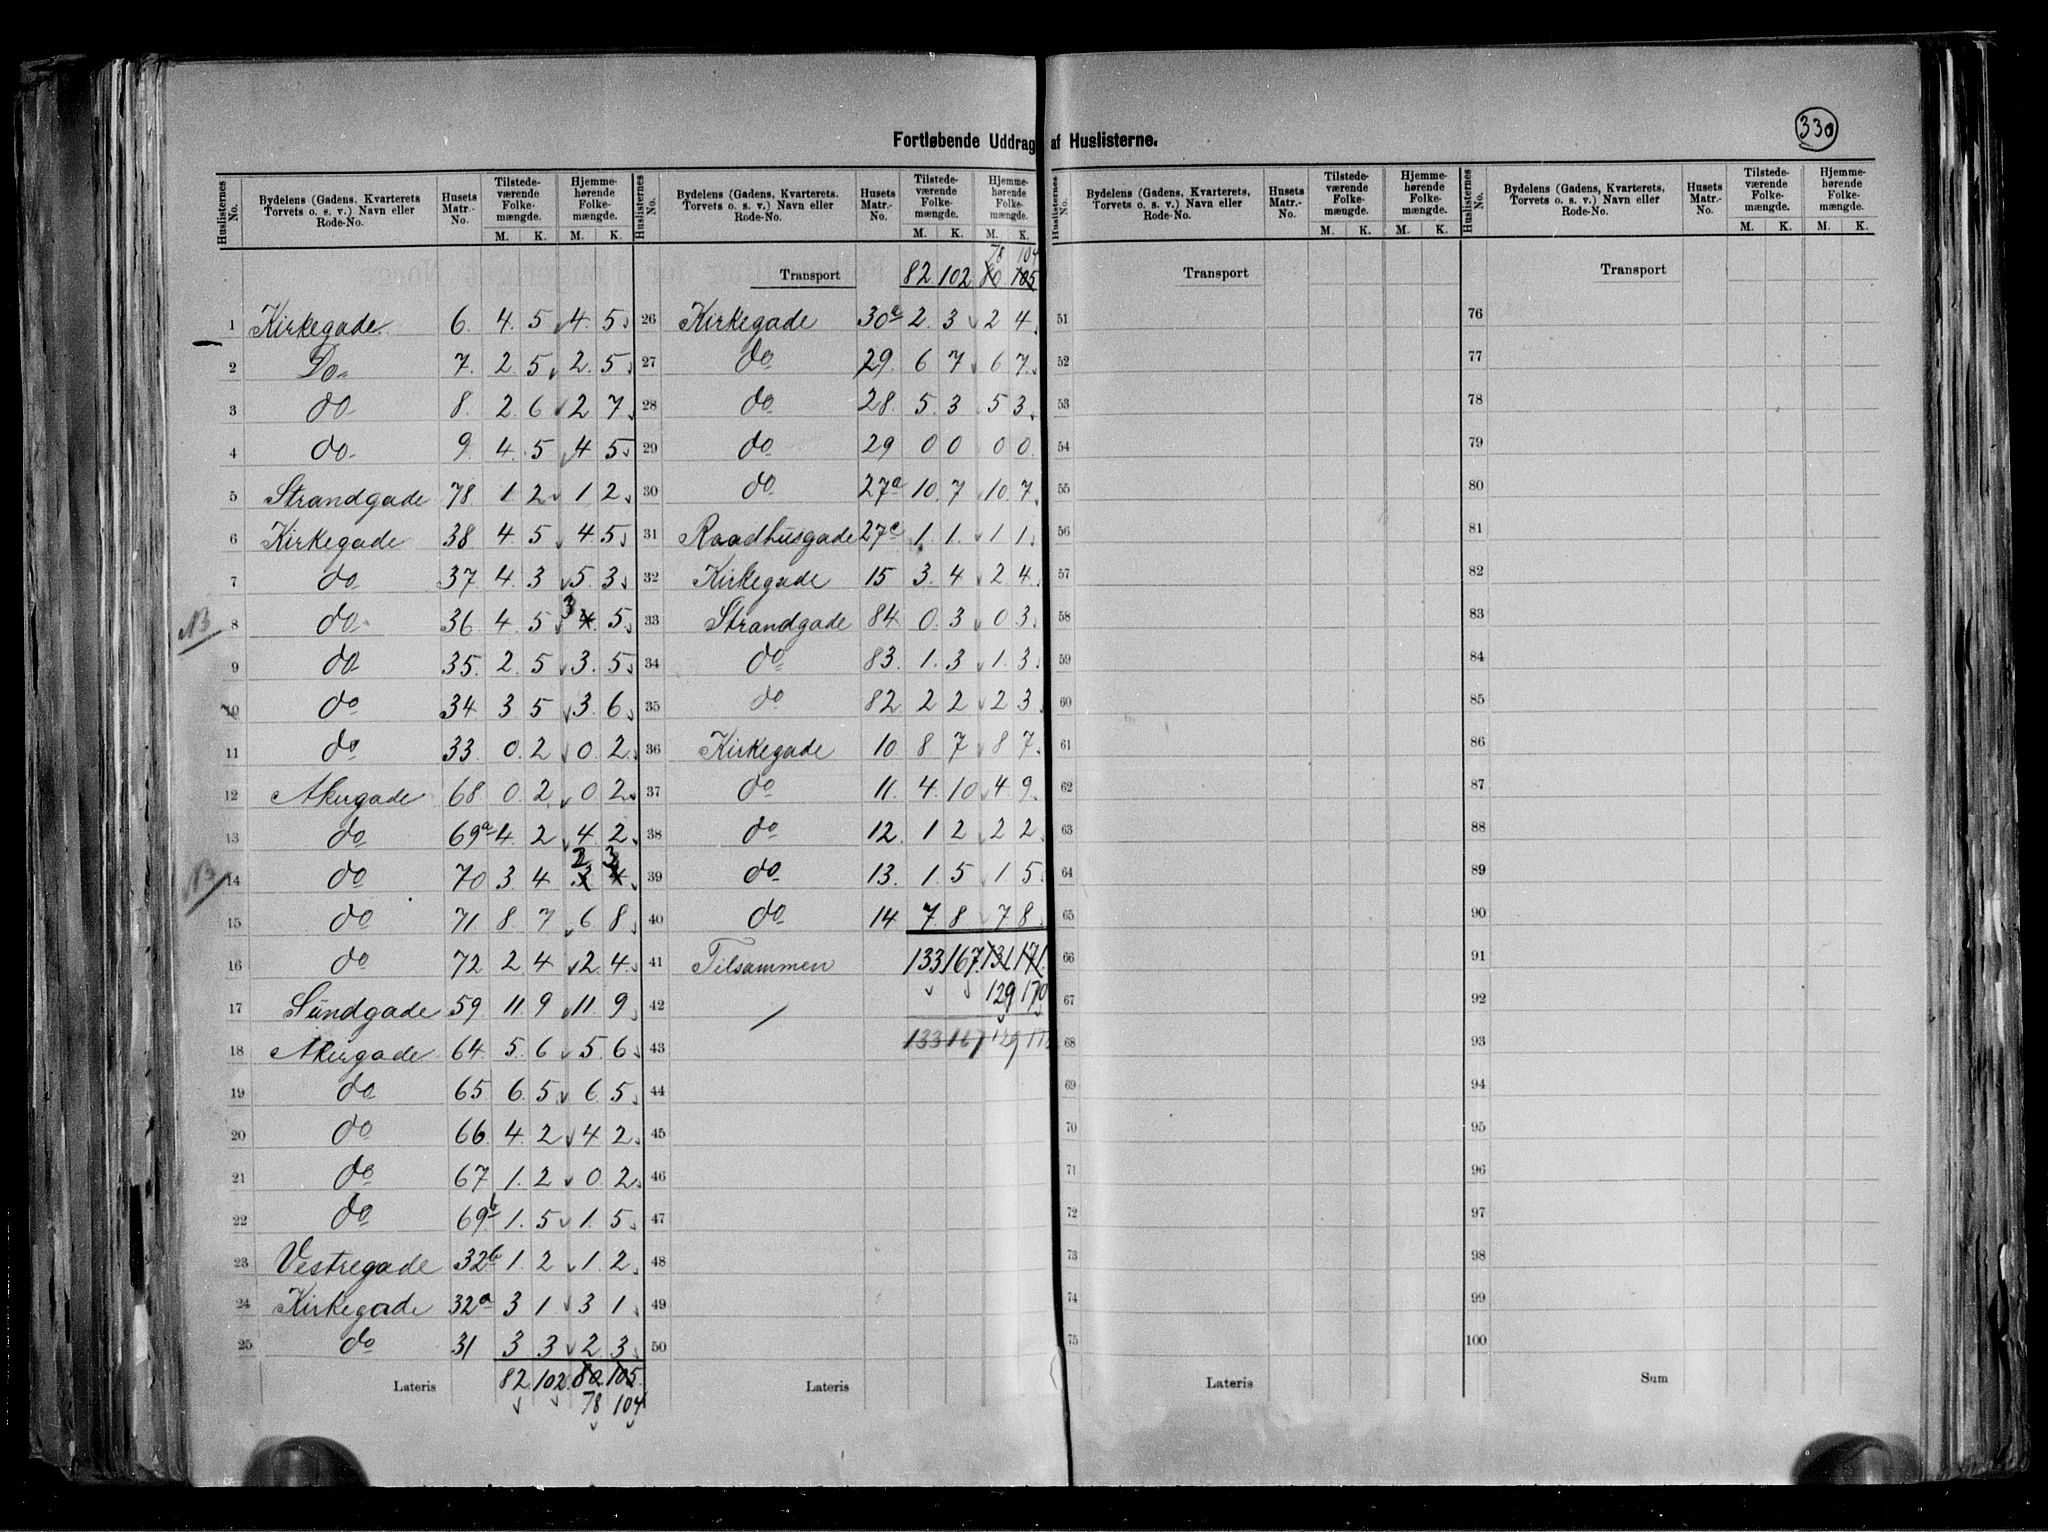 330
Fortløbende Uddrag af Huslisterne.
Huslisternes No. | Bydelens (Gadens, Kvarterets, Torvets o. s. v.) Navn eller Rode-No. | Husets Matr.-No. | Tilstedeværende Folkemængde. M. K. | Hjemmehørende Folkemængde. M. K.
1 Kirkegade 6. 4. 5 4. 5
2 Do 7. 2. 5 2. 5
3 do 8. 2. 6 2 7
4 do 9. 4. 5 4 5
5 Strandgade 78 1 2 1 2
6 Kirkegade 38 4 5 4. 5
7 do 37. 4. 3 5. 3
NB 8 do 36. 4. 5 4 3 5
9 do 35. 2. 5 3. 5
10 do 34 3 5 3. 6
11 do 33. 0. 2 0 2
12 Akergade 68 0. 2 0 2
13 do 69a 4. 2 4. 2
NB 14 do 70 3 4 3 2 4 3
15 do 71. 8 7 6 8
16 do 72 2 4 2. 4
17 Sundgade 59. 11. 9 11. 9
18 Akergade 64. 5. 6 5. 6
19 do 65 6. 5 6. 5
20 do 66 4. 2 4 2
21 do 67 1. 2 0 2
22 do 69b 1. 5 1. 5
23 Vestregade 32b 1. 2 1. 2
24 Kirkegade 32a 3 1 3 1
25 do 31 3 3 2 3
Lateris 82 102 80 105
78 104
Huslisternes No. | Bydelens (Gadens, Kvarterets, Torvets o. s. v.) Navn eller Rode-No. | Husets Matr.-No. | Tilstedeværende Folkemængde. M. K. | Hjemmehørende Folkemængde. M. K.
78 104
Transport 82 102 80 105
26 Kirkegade 30 2. 3 2 4
27 do 29. 6 7 6 7
28 do 28. 5. 3 5 3
29 do 29 0 0 0 0
30 do 27a 10. 7 10. 7
31 Raadhusgade 27c 1. 1. 1 1
32 Kirkegade 15 3. 4 2. 4
33 Strandgade 84 0. 3 0 3
34 do 83. 1. 3 1. 3
35 do 82 2 2 2 3
36 Kirkegade 10 8 7 8 7
37 do 11. 4. 10 4 9
38 do 12. 1 2 2 2
39 do 13. 1. 5 1 5
40 do 14 7. 8 7 8
41 Tilsammen 133 167. 131 171
42 129 170
43 133 167 129
44
45
46
47
48
49
50
Lateris
Huslisternes No. | Bydelens (Gadens, Kvarterets, Torvets o. s. v.) Navn eller Rode-No. | Husets Matr.-No. | Tilstedeværende Folkemængde. M. K. | Hjemmehørende Folkemængde. M. K.
Transport
51
52
53
54
55
56
57
58
59
60
61
62
63
64
65
66
67
68
69
70
71
72
73
74
75
Lateris
Huslisternes No. | Bydelens (Gadens, Kvarterets, Torvets o. s. v.) Navn eller Rode-No. | Husets Matr.-No. | Tilstedeværende Folkemængde. M. K. | Hjemmehørende Folkemængde. M. K.
Transport
76
77
78
79
80
81
82
83
84
85
86
87
88
89
90
91
92
93
94
95
96
97
98
99
100
Sum